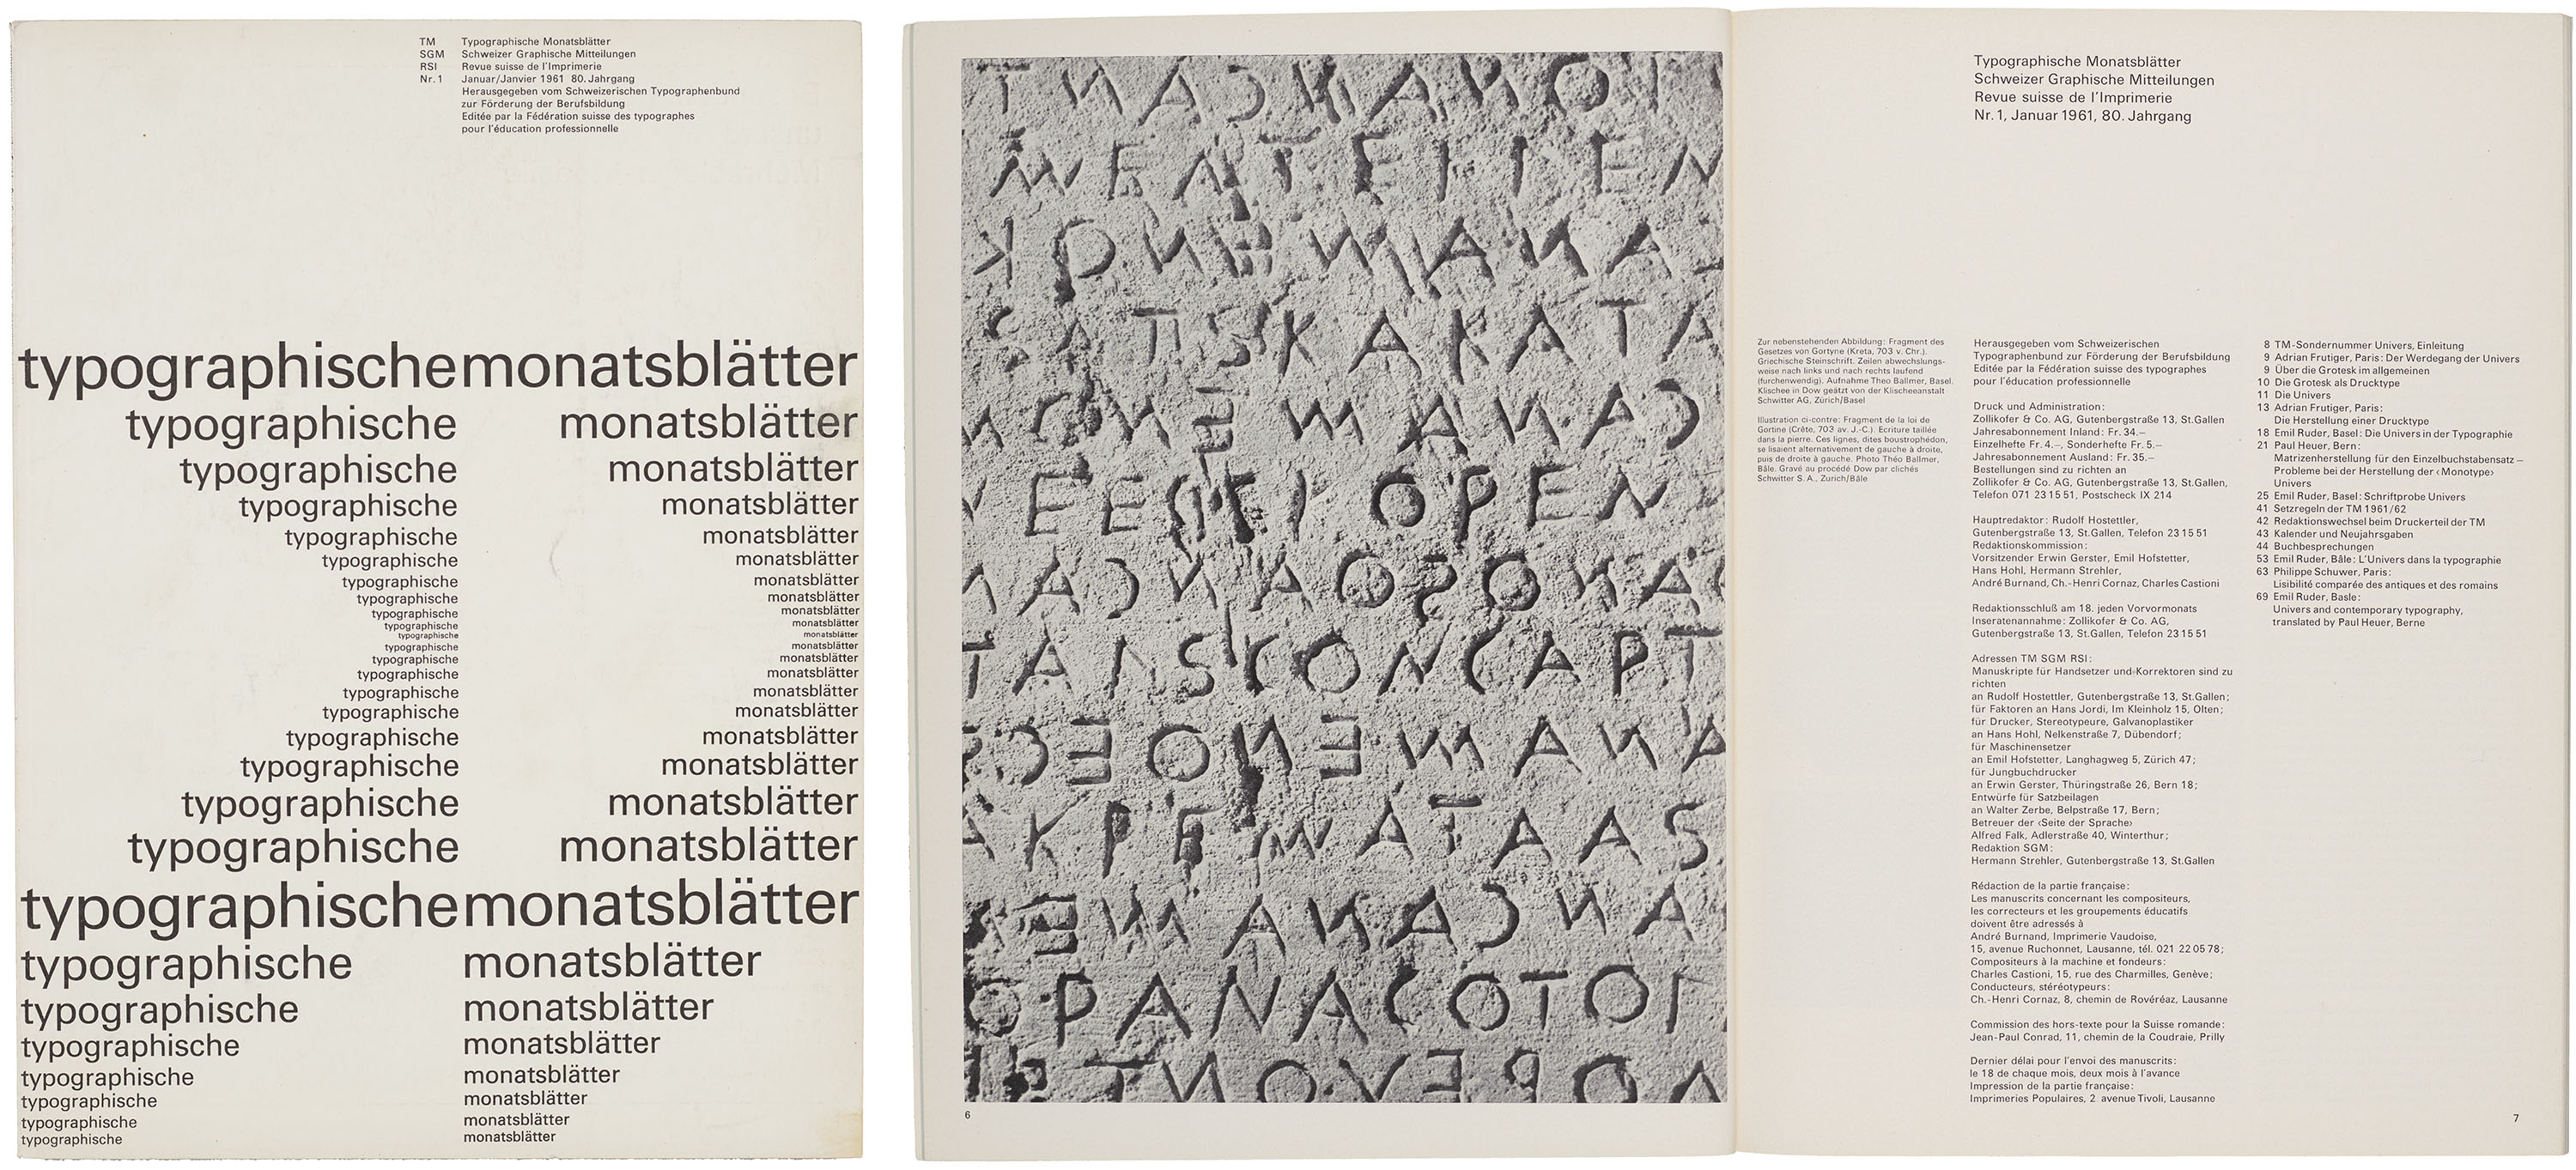 TM Typographische Monatsblätter
SGM Schweizer Graphische Mitteilungen
RSI Revue suisse de l'Imprimerie
Nr. 1 Januar/Janvier 1961 80. Jahrgang
Herausgegeben vom Schweizerischen Typographenbund
zur Förderung der Berufsbildung
Editée par la Fédération suisse des typographes
pour l'éducation professionnelle
typographischemonatsblätter
typographische monatsblätter
typographische monatsblätter
typographische monatsblätter
typographische monatsblätter
typographische monatsblätter
typographische monatsblätter
typographische monatsblätter
typographische monatsblätter
typographische monatsblätter
typographische monatsblätter
typographische monatsblätter
typographische monatsblätter
typographische monatsblätter
typographische monatsblätter
typographische monatsblätter
typographische monatsblätter
typographische monatsblätter
typographische monatsblätter
typographische monatsblätter
typographischemonatsblätter
typographische monatsblätter
typographische monatsblätter
typographische monatsblätter
typographische monatsblätter
typographische monatsblätter
typographische monatsblätter
typographische monatsblätter
6
Typographische Monatsblätter
Schweizer Graphische Mitteilungen
Revue suisse de l'Imprimerie
Nr. 1, Januar 1961, 80. Jahrgang
Zur nebenstehenden Abbildung: Fragment des
Gesetzes von Gortyne (Kreta, 703 v. Chr.).
Griechische Steinschrift. Zeilen abwechslungs-
weise nach links und nach rechts laufend
(furchenwendig). Aufnahme Theo Ballmer, Basel.
Klischee in Dow geätzt von der Klischeeanstalt
Schwitter AG, Zürich/Basel
Illustration ci-contre: Fragment de la loi de
Gortine (Crête, 703 av. J.-C.). Ecriture taillée
dans la pierre. Ces lignes, dites boustrophédon,
se lisaient alternativement de gauche à droite,
puis de droite à gauche. Photo Théo Ballmer,
Bâle. Gravé au procédé Dow par clichés
Schwitter S.A., Zurich/Bâle
Herausgegeben vom Schweizerischen
Typographenbund zur Förderung der Berufsbildung
Editée par la Fédération suisse des typographes
pour l'éducation professionnelle
Druck und Administration:
Zollikofer & Co. AG, Gutenbergstraße 13, St.Gallen
Jahresabonnement Inland: Fr. 34.–
Einzelhefte Fr. 4.–, Sonderhefte Fr. 5.–
Jahresabonnement Ausland: Fr. 35.–
Bestellungen sind zu richten an
Zollikofer & Co. AG, Gutenbergstraße 13, St.Gallen,
Telefon 071 23 15 51, Postscheck IX 214
Hauptredaktor: Rudolf Hostettler,
Gutenbergstraße 13, St.Gallen, Telefon 23 15 51
Redaktionskommission:
Vorsitzender Erwin Gerster, Emil Hofstetter,
Hans Hohl, Hermann Strehler,
André Burnand, Ch.-Henri Cornaz, Charles Castioni
Redaktionsschluß am 18. jeden Vorvormonats
Inseratenannahme: Zollikofer & Co. AG,
Gutenbergstraße 13, St.Gallen, Telefon 23 15 51
Adressen TM SGM RSI:
Manuskripte für Handsetzer und Korrektoren sind zu
richten
an Rudolf Hostettler, Gutenbergstraße 13, St.Gallen;
für Faktoren an Hans Jordi, Im Kleinholz 15, Olten;
für Drucker, Stereotypeure, Galvanoplastiker
an Hans Hohl, Nelkenstraße 7, Dübendorf;
für Maschinensetzer
an Emil Hofstetter, Langhagweg 5, Zürich 47;
für Jungbuchdrucker
an Erwin Gerster, Thüringstraße 26, Bern 18;
Entwürfe für Satzbeilagen
an Walter Zerbe, Belpstraße 17, Bern;
Betreuer der ‹Seite der Sprache›
Alfred Falk, Adlerstraße 40, Winterthur;
Redaktion SGM:
Hermann Strehler, Gutenbergstraße 13, St.Gallen
Rédaction de la partie française:
Les manuscrits concernant les compositeurs,
les correcteurs et les groupements éducatifs
doivent être adressés à
André Burnand, Imprimerie Vaudoise,
15, avenue Ruchonnet, Lausanne, tél. 021 22 05 78;
Compositeurs à la machine et fondeurs:
Charles Castioni, 15, rue des Charmilles, Genève;
Conducteurs, stéréotypeurs:
Ch.-Henri Cornaz, 8, chemin de Rovéréaz, Lausanne
Commission des hors-texte pour la Suisse romande:
Jean-Paul Conrad, 11, chemin de la Coudraie, Prilly
Dernier délai pour l'envoi des manuscrits:
le 18 de chaque mois, deux mois à l'avance
Impression de la partie française:
Imprimeries Populaires, 2 avenue Tivoli, Lausanne
8 TM-Sondernummer Univers, Einleitung
9 Adrian Frutiger, Paris: Der Werdegang der Univers
9 Über die Grotesk im allgemeinen
10 Die Grotesk als Drucktype
11 Die Univers
13 Adrian Frutiger, Paris:
Die Herstellung einer Drucktype
18 Emil Ruder, Basel: Die Univers in der Typographie
21 Paul Heuer, Bern:
Matrizenherstellung für den Einzelbuchstabensatz –
Probleme bei der Herstellung der ‹Monotype›
Univers
25 Emil Ruder, Basel: Schriftprobe Univers
41 Setzregeln der TM 1961/62
42 Redaktionswechsel beim Druckerteil der TM
43 Kalender und Neujahrsgaben
44 Buchbesprechungen
53 Emil Ruder, Bâle: L'Univers dans la typographie
63 Philippe Schuwer, Paris:
Lisibilité comparée des antiques et des romains
69 Emil Ruder, Basle:
Univers and contemporary typography,
translated by Paul Heuer, Berne
7